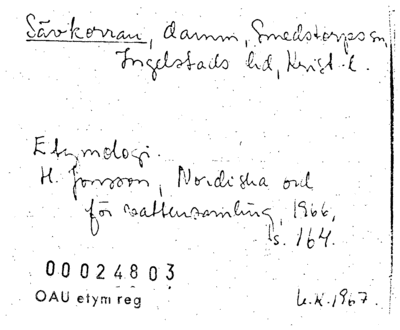 Sävkorran, damm, Smedstorps sn,
Ingelstads hd, Krist. l.
Etymologi.
H. Jonsson, Nordiska ord
för vattensamling, 1966,
s. 164.
00024803
OAU etym reg
1967.